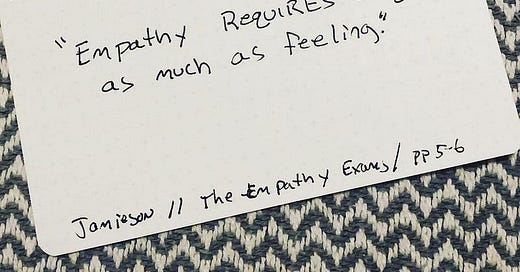 "Empathy REquiREs
as much as feeling."
Jamieson // The Empathy Exams / pp 5-6